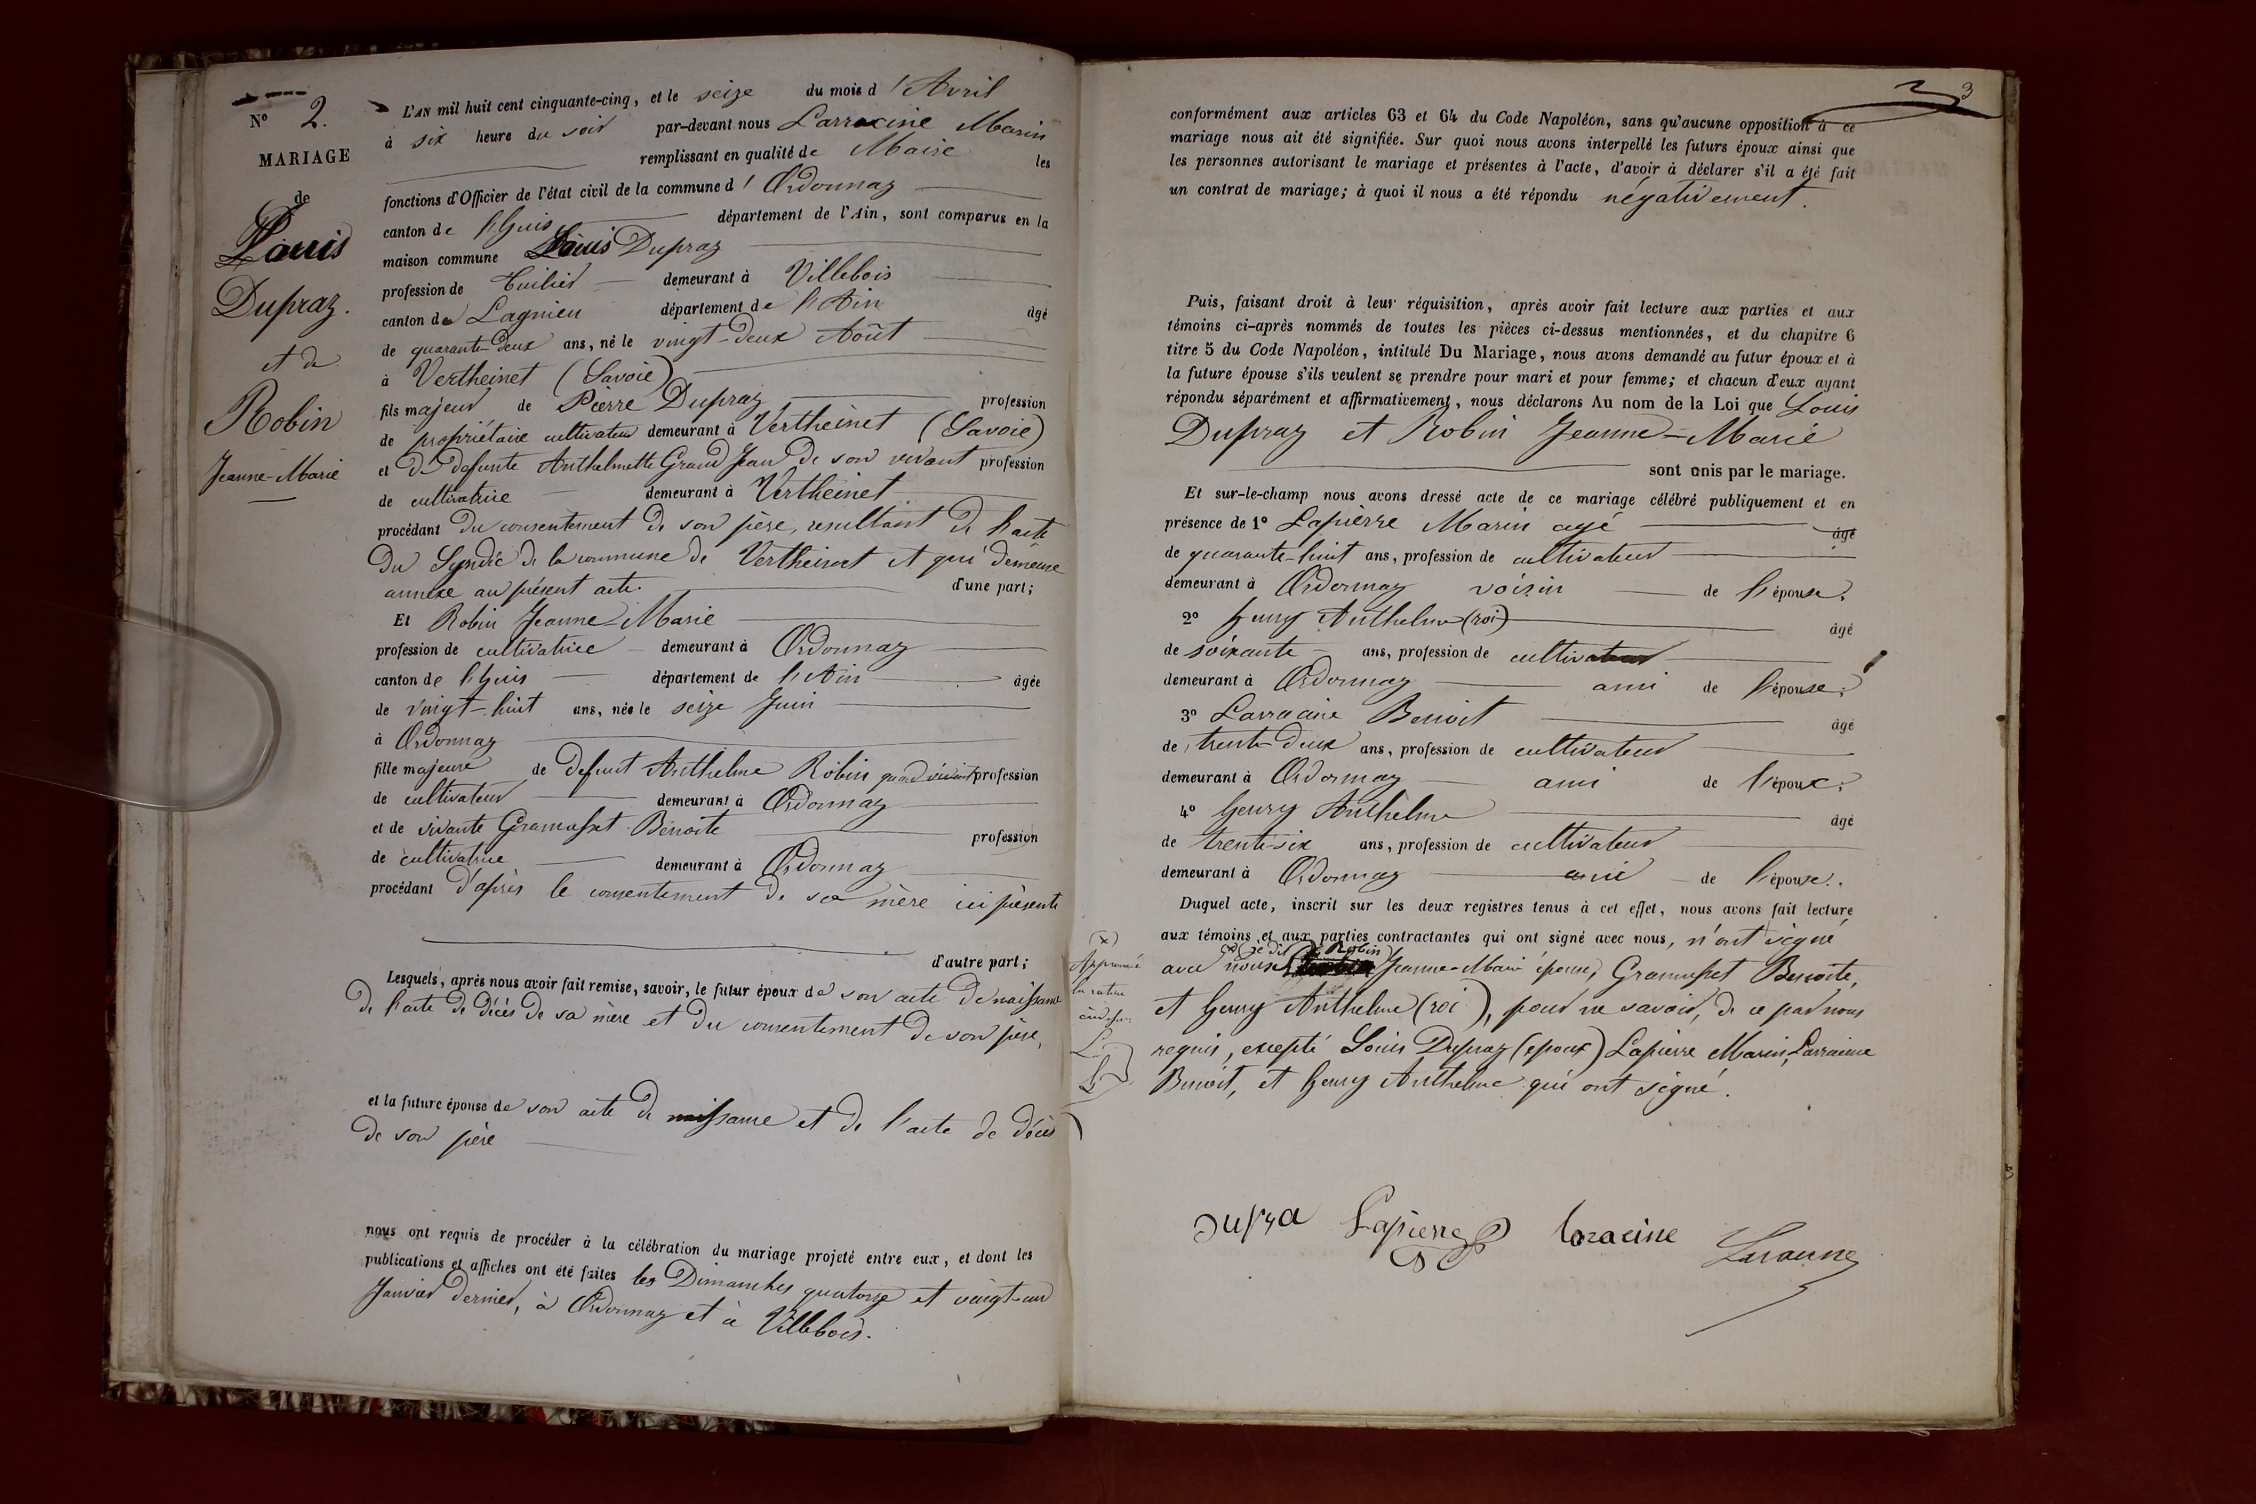 N° 2.
MARIAGE
de
Louis
Dupraz.
et de
Robin
Jeanne-Marie
L'AN mil huit cent cinquante-cinq, et le seize du mois d'Avril
à six heure du soir par-devant nous Larracine Marin
remplissant en qualité de Maire les
fonctions d'Officier de l'état civil de la commune d'Ordonnaz
canton de l'huis département de l'Ain, sont comparus en la
maison commune Louis Dupraz
profession de tuilier demeurant à Villebois
canton de Lagnieu département de l'Ain âgé
de quarante-deux ans, né le vingt-deux Août
à Vertheinet (Savoie)
fils majeur de Pierre Dupraz profession
de propriétaire cultivateur demeurant à Vertheinet (Savoie)
et de defunte Anthelmette Grand Jean de son vivant profession
de cultivatrice demeurant à Vertheinet
procédant du consentement de son père, resultant de l'acte
du Syndic de la commune de Vertheinet et qui demeure
annexe au présent acte. d'une part;
Et Robin Jeanne-Marie
profession de cultivatrice demeurant à Ordonnaz
canton de l'huis département de l'Ain âgée
de vingt-huit ans, née le seize Juin
à Ordonnaz
fille majeure de defunt Anthelme Robin quand vivant profession
de cultivateur demeurant à Ordonnaz
et de vivante Gramusset Benoite profession
de cultivatrice demeurant à Ordonnaz
procédant d'après le consentement de sa mère ici présente
d'autre part;
Lesquels, après nous avoir fait remise, savoir, le futur époux de son acte de naissance
de l'acte de décès de sa mère et du consentement de son père,
et la future épouse de son acte de naissance et de l'acte de décès
de son père
nous ont requis de procéder à la célébration du mariage projeté entre eux, et dont les
publications et affiches ont été faites les Dimanches quatorze et vingt-un
Janvier dernier, à Ordonnaz et à Villebois.
3
conformément aux articles 63 et 64 du Code Napoléon, sans qu'aucune opposition à ce
mariage nous ait été signifiée. Sur quoi nous avons interpellé les futurs époux ainsi que
les personnes autorisant le mariage et présentes à l'acte, d'avoir à déclarer s'il a été fait
un contrat de mariage; à quoi il nous a été répondu négativement.
Puis, faisant droit à leur réquisition, après avoir fait lecture aux parties et aux
témoins ci-après nommés de toutes les pièces ci-dessus mentionnées, et du chapitre 6
titre 5 du Code Napoléon, intitulé Du Mariage, nous avons demandé au futur époux et à
la future épouse s'ils veulent se prendre pour mari et pour femme; et chacun d'eux ayant
répondu séparément et affirmativement, nous déclarons Au nom de la Loi que Louis
Dupraz et Robin Jeanne-Marie
sont unis par le mariage.
Et sur-le-champ nous avons dressé acte de ce mariage célébré publiquement et en
présence de 1° Lapierre Marin agé âgé
de quarante-huit ans, profession de cultivateur
demeurant à Ordonnaz voisin de l'épouse.
2° henry Anthelme (roi) âgé
de soixante ans, profession de cultivateur
demeurant à Ordonnaz ami de l'épouse;
3° Larracine Benoit âgé
de trente-deux ans, profession de cultivateur
demeurant à Ordonnaz ami de l'époux;
4° henry Anthelme âgé
de trente-six ans, profession de cultivateur
demeurant à Ordonnaz ami de l'épouse.
Duquel acte, inscrit sur les deux registres tenus à cet effet, nous avons fait lecture
aux témoins et aux parties contractantes qui ont signé avec nous, n'ont signé
(x) je dis Robin
avec nous Jeanne-Marie épouse, Gramusset Benoite,
et henry Anthelme (roi), pour ne savoir, de ce par nous
requis, excepté Louis Dupraz (epoux) Lapierre Marin, Larracine
Benoit, et henry Anthelme qui ont signé.
(x)
Approuvé
la rature
ci-dessus
Dupra Lapierre Laracine Laracine